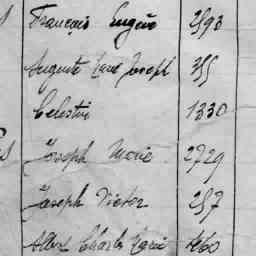 François Eugène 2593
Auguste Joseph 355
Celestin 1330
Joseph Marie 2729
Joseph Victor 257
Albert Charles Marie 4260